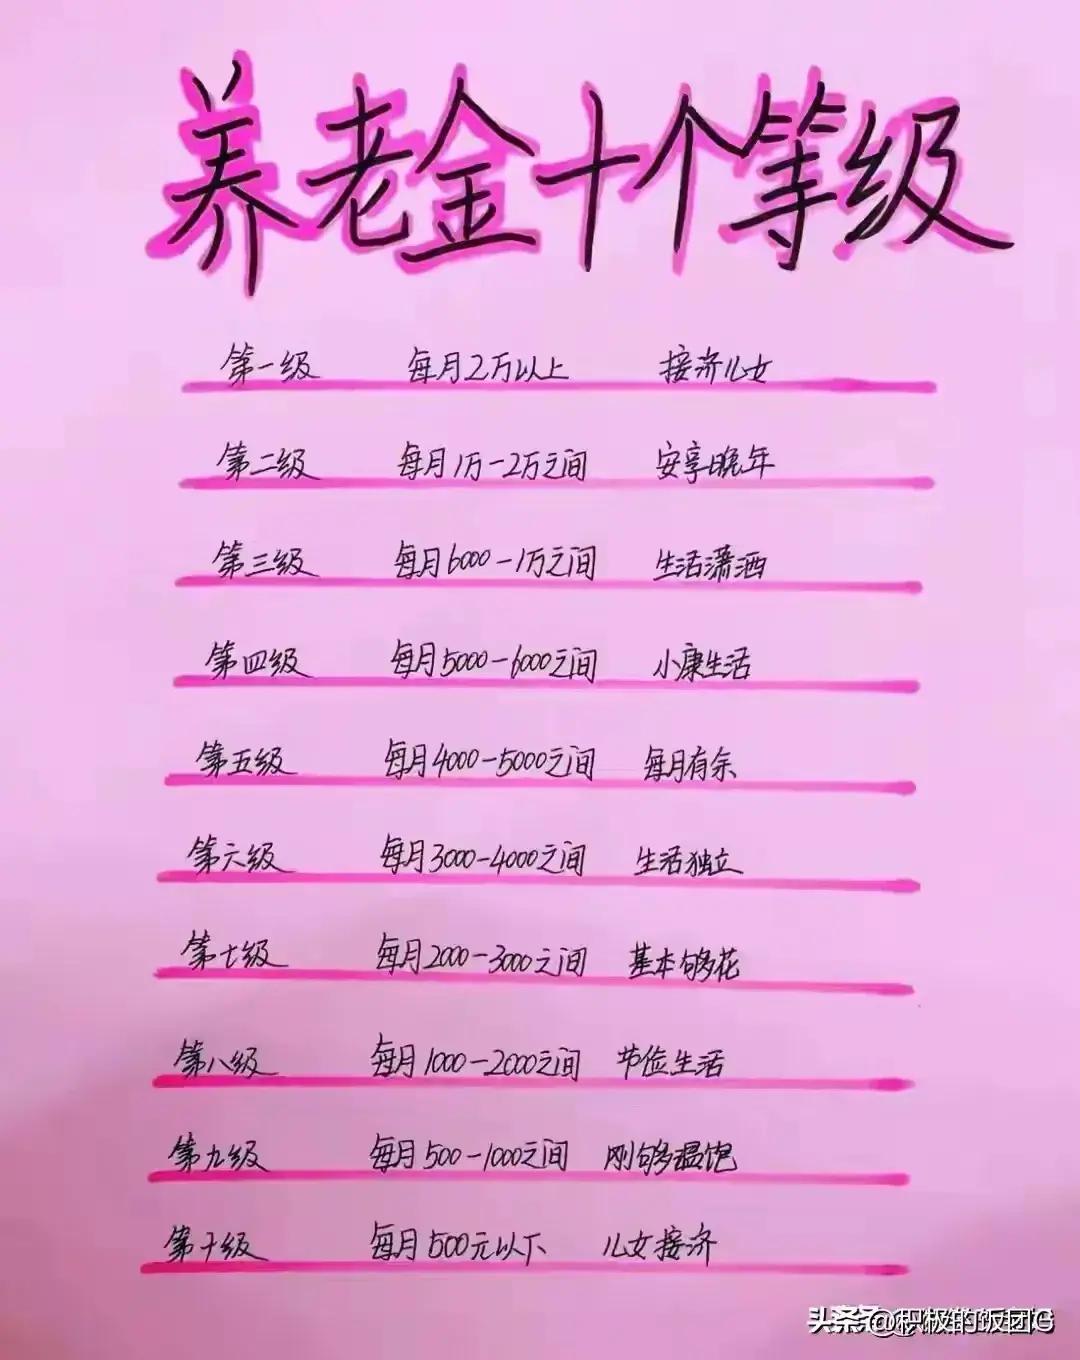 养老金十个等级
第一级 每月2万以上 接济儿女
第二级 每月1万-2万之间 安享晚年
第三级 每月6000-1万之间 生活潇洒
第四级 每月5000-6000之间 小康生活
第五级 每月4000-5000之间 每月有余
第六级 每月3000-4000之间 生活独立
第七级 每月2000-3000之间 基本够花
第八级 每月1000-2000之间 节俭生活
第九级 每月500-1000之间 刚够温饱
第十级 每月500元以下 儿女接济
头条 @积极的饭团G